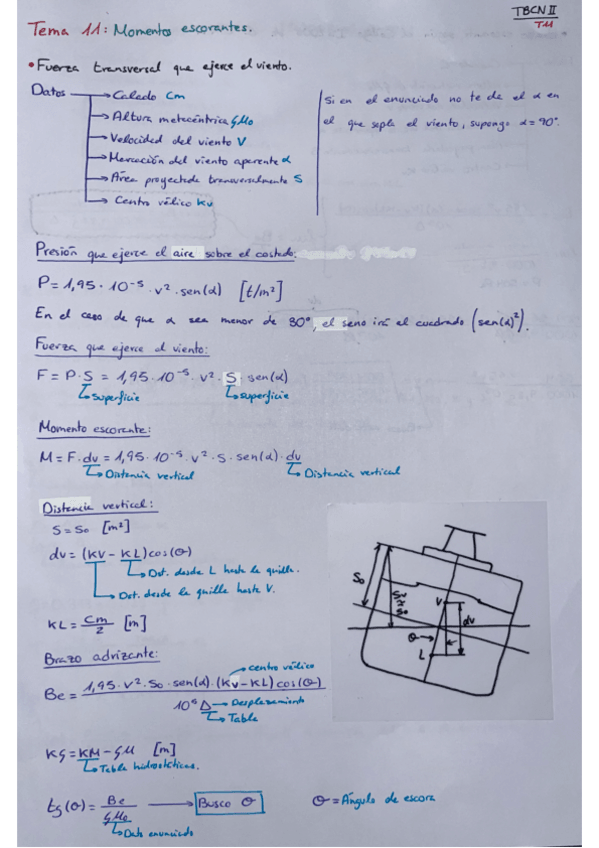 TBCN II
T11
Tema 11: Momentos escorantes.
• Fuerza transversal que ejerce el viento.
Datos → Calado Cm
→ Altura metacéntrica GMo
→ Velocidad del viento V
→ Marcación del viento aparente α
→ Área proyectada transversalmente S
→ Centro vélico Kv
Si en el enunciado no te da el α en
el que sopla el viento, supongo α = 90°.
Presión que ejerce el aire sobre el costado:
P = 1,95 · 10⁻⁵ · v² · sen(α) [t/m²]
En el caso de que α sea menor de 30°, el seno irá al cuadrado (sen(α)²).
Fuerza que ejerce el viento:
F = P · S = 1,95 · 10⁻⁵ · v² · S · sen(α)
↳ Superficie ↳ superficie
Momento escorante:
M = F · dv = 1,95 · 10⁻⁵ · v² · S · sen(α) · dv
↳ Distancia vertical ↳ Distancia vertical
Distancia vertical:
S = So [m²]
dv = (KV - KL) cos(θ)
↳ Dist. desde L hasta la quilla.
↳ Dist. desde la quilla hasta V.
KL = Cm/2 [m]
Brazo adrizante:
→ centro vélico
Be = 1,95 · v² · So · sen(α) · (Kv - KL) cos(θ) / 10⁵ Δ → Desplazamiento
↳ Tabla
KG = KM - GM [m]
↳ Tabla hidrostáticas.
tg(θ) = Be / GMo → Busco θ θ = Ángulo de escora
↳ Dato enunciado
So
V
dv
θ
L